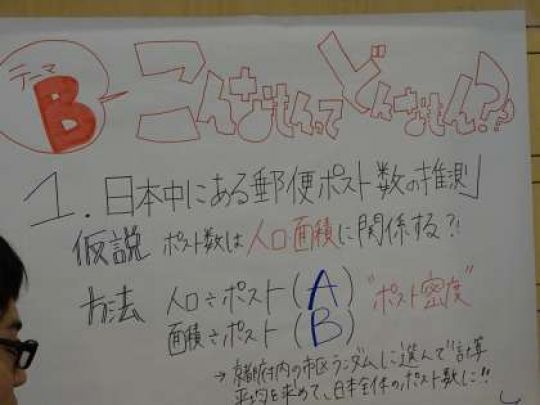 テーマ
B
こんなもんってどんなもん??
1. 日本中にある郵便ポスト数の推測」
仮説 ポスト数は人口面積に関係する?!
方法 人口÷ポスト(A) "ポスト密度"
面積÷ポスト(B)
→京都府内の市区ランダムに選んで計算
平均を求めて、日本全体のポスト数に!!